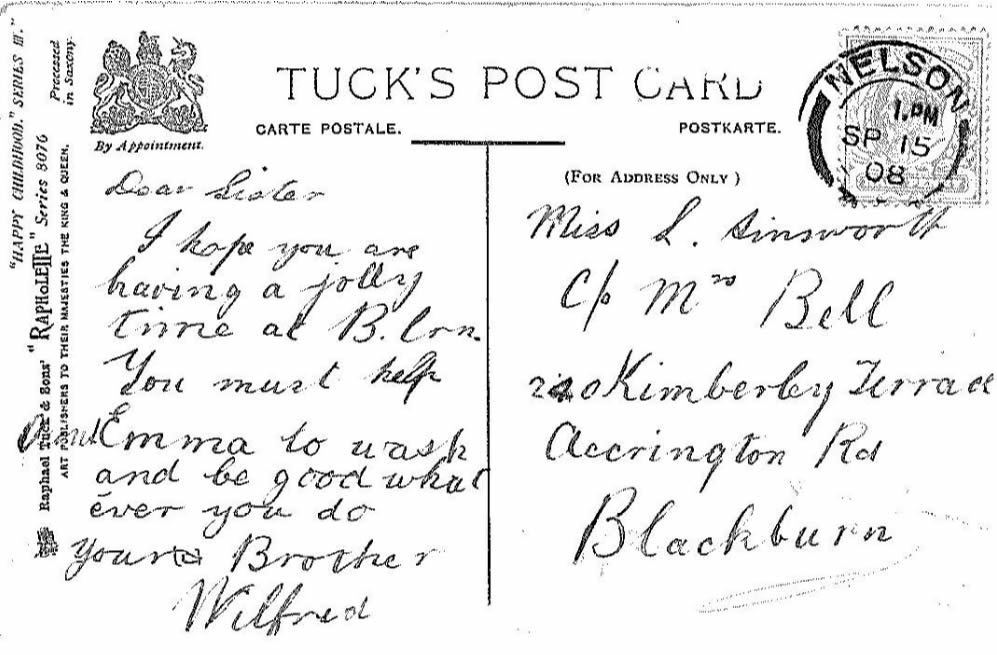 "HAPPY CHILDHOOD." SERIES III.
Processed
in Saxony.
Raphael Tuck & Sons' "RAPHOLETTE" Series 8076
ART PUBLISHERS TO THEIR MAJESTIES THE KING & QUEEN.
By Appointment.
TUCK'S POST CARD
CARTE POSTALE.
POSTKARTE.
(FOR ADDRESS ONLY)
NELSON
1. PM
SP 15
08
Dear Sister
I hope you are
having a jolly
time at B.brn.
You must help
Aunt Emma to wash
and be good what
ever you do
Your Brother
Wilfred
Miss L. Ainsworth
C/o Mrs Bell
Kimberley Terrace
Accrington Rd
Blackburn